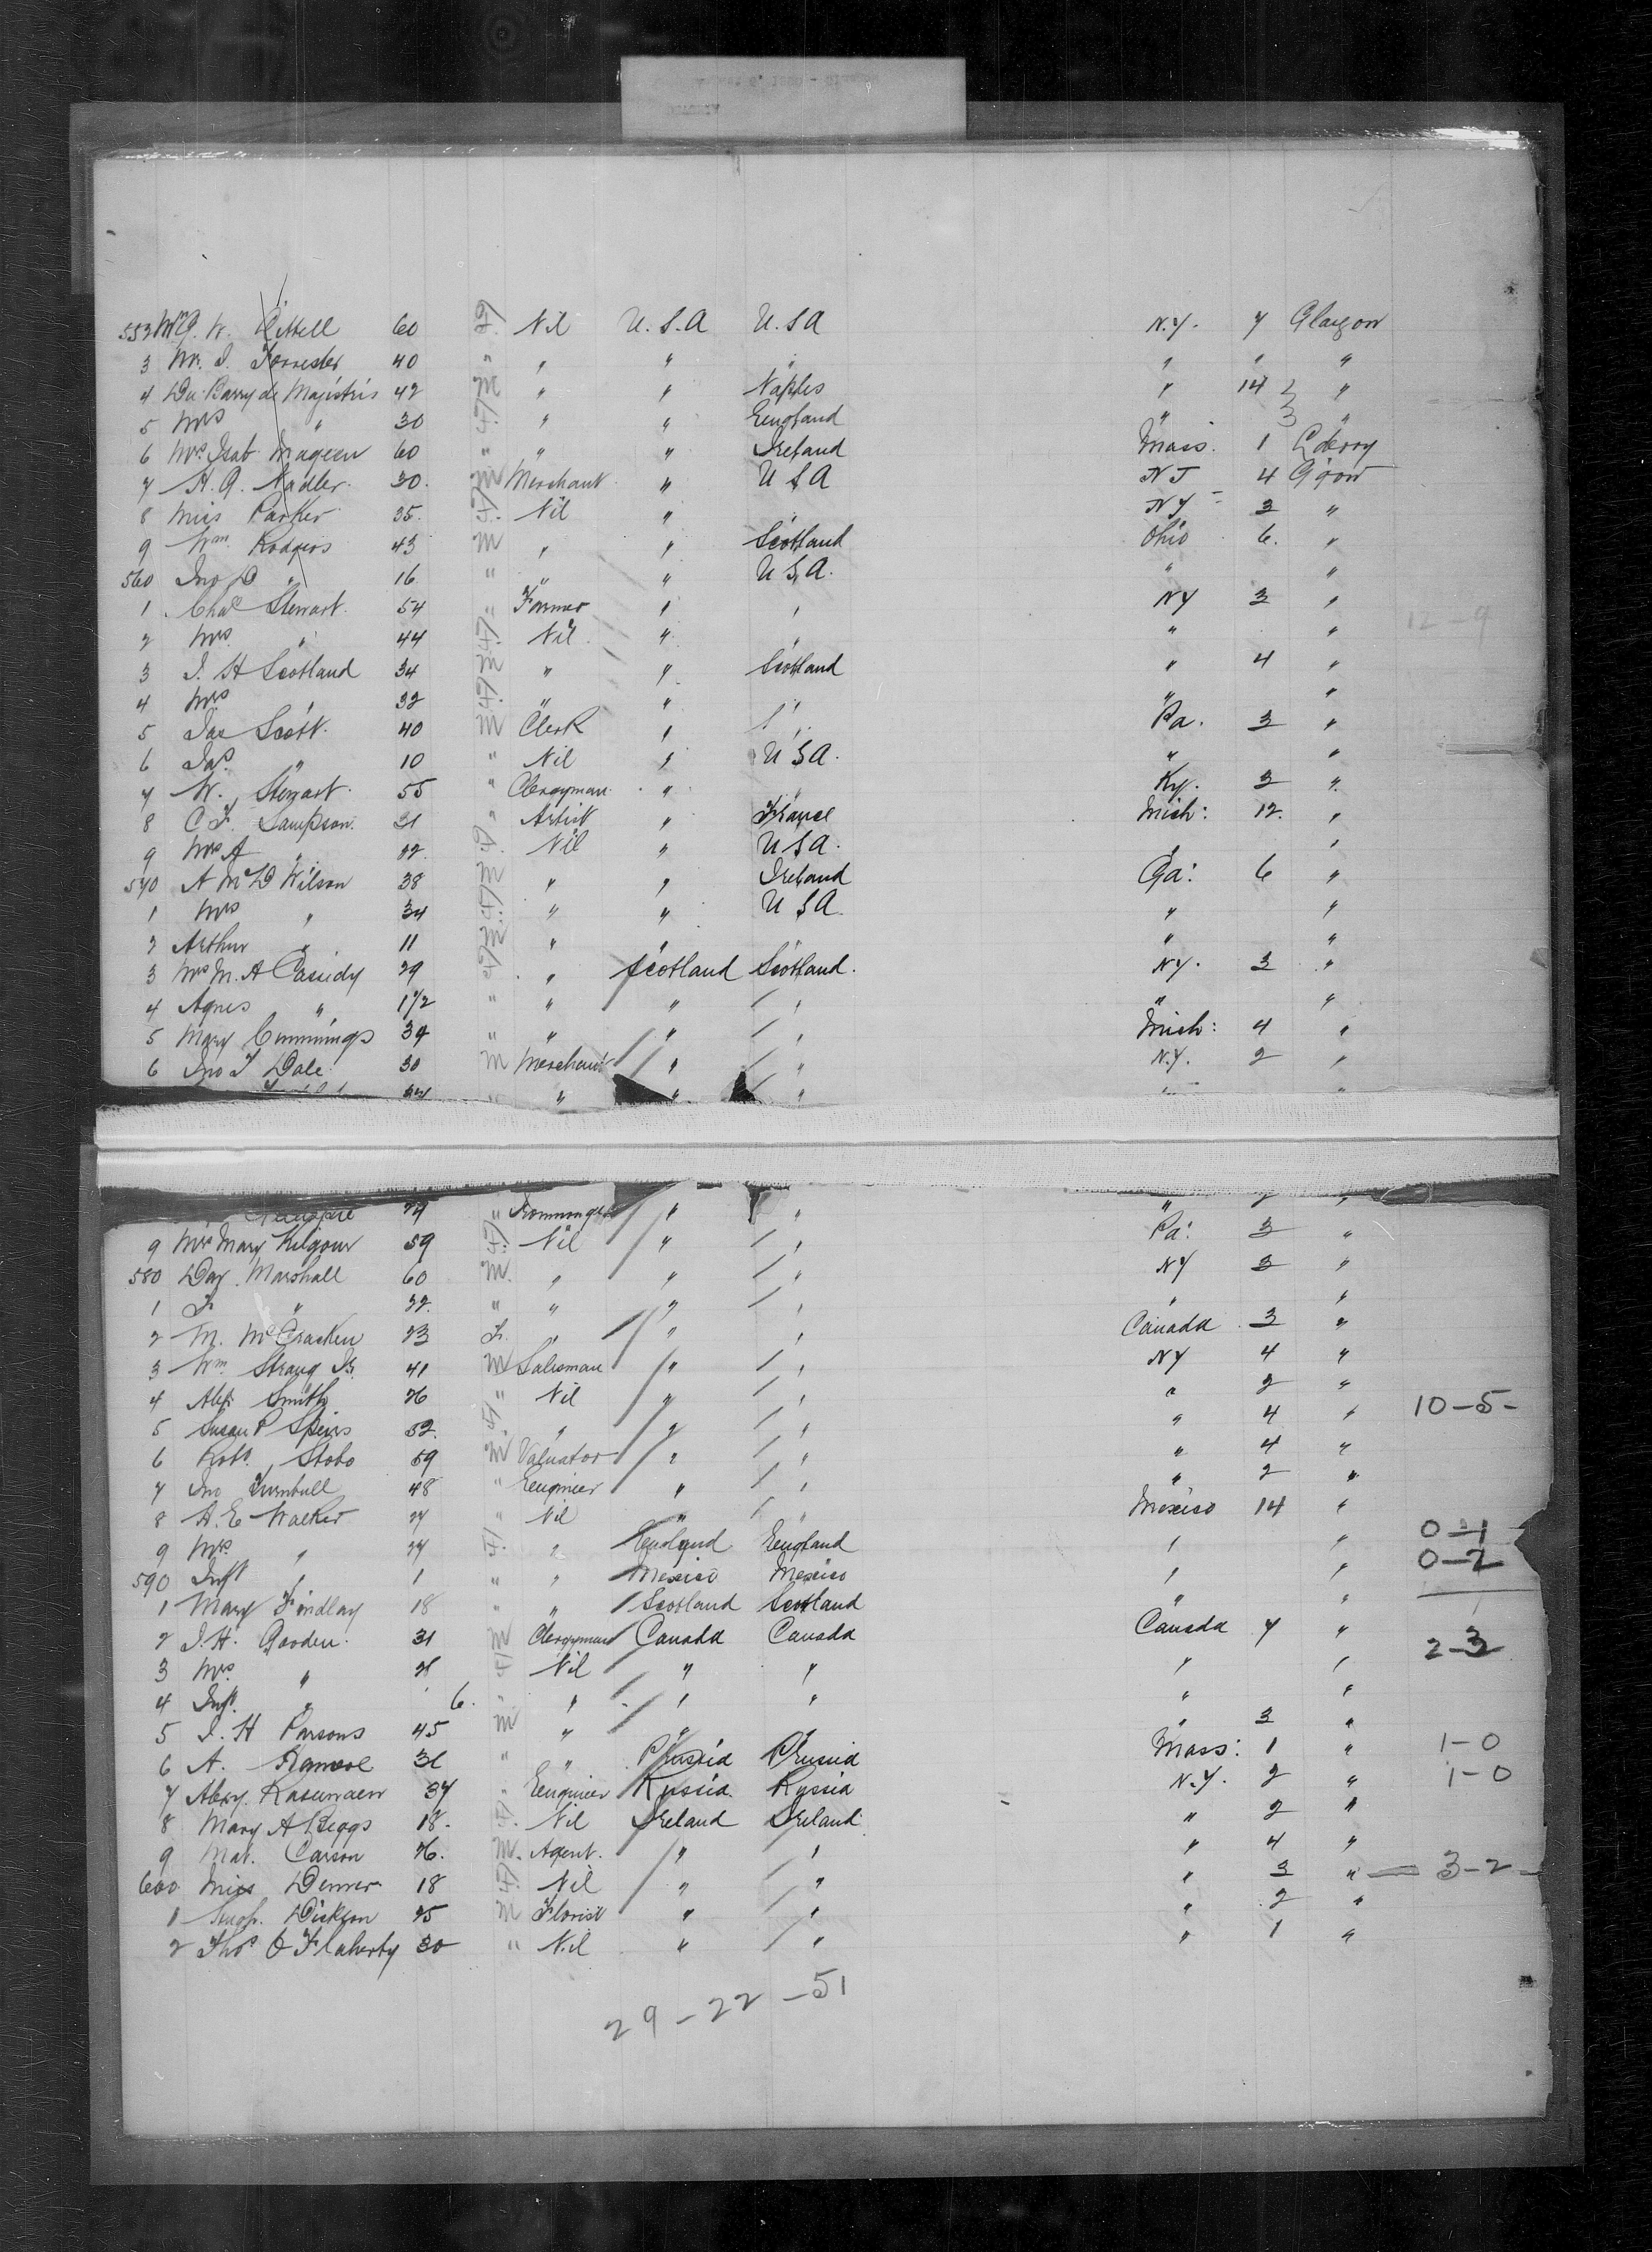 552 Mrs G. W. Kittell 60 F Nil U.S.A U.S.A N.Y. 7 Glasgow
3 Mrs J. Forrester 40 " " " " " " "
4 Du Barry de Magistris 42 M " " Naples " 14 "
5 Mrs " 30 F. " " England " 3 "
6 Mrs Isab Mageen 60 " " " Ireland Mass. 1 L'derry
7 H. A. Nadler. 30. M Merchant " U S A N J 4 G'gow
8 Miss Parker 35. F. Nil " N Y - 3 "
9 Wm Rodgers 43 M " " Scotland Ohio 6. "
560 Jno " 16 " " " U S A. " "
1 Chas Stewart 54 " Farmer " " N Y 3 "
2 Mrs " 44 F. Nil " " " " 12-9
3 J. H Scotland 34 M " " Scotland " 4 "
4 Mrs " 32 F. " " " " "
5 Jas Scott. 40 M Clerk " " Pa. 3 "
6 Jas. " 10 " Nil " U S A. " "
7 W. Stewart. 55 " Clergyman " " Ky. 3 "
8 C F. Sampson. 31 " Artist " France Mich: 12. "
9 Mrs A " 32. F. Nil " U S A. " "
570 A McD Wilson 38 M " " Ireland Ga: 6 "
1 Mrs " 34 F. " " U S A. " "
2 Arthur " 11 M " " " "
3 Mrs M. A Cassidy 29 F " Scotland Scotland. N Y. 3 "
4 Agnes " 1 1/2 " " " " " "
5 Mary Cummings 34 " " " " Mich: 4 "
6 Jno T Dale 30 M Merchant " " N.Y. 2 "
" " " " " "
24 " Ironmonger " " " 2 "
9 Mrs Mary Kilgour 59 F. Nil " " Pa: 3 "
580 Day. Marshall 60 M. " " " N Y 3 "
1 " 22. " " " " " "
2 M. McCracken 23 F. " " " Canada 3 "
3 Wm Strang Jr. 41 M Salesman " " N Y 4 "
4 Alex. Smith 26 " Nil " " " 2 "
5 Susan P Speirs 52. F. " " " " 4 " 10-5-
6 Robt. Stobo 59 M Valuator " " " 4 "
7 Jno Turnbull 48 " Engineer " " " 2 "
8 A. E Walker 27 " Nil " " Mexico 14 "
9 Mrs. " 27 F. " England England " " 0-1
590 Inft " 1 " " Mexico Mexico " " 0-2
1 Mary Findlay 18 " " Scotland Scotland " "
2 J. H. Gooden. 31 M Clergyman Canada Canada Canada 7 " 2-3
3 Mrs. " 21 F. Nil " " " "
4 Inft. " 6. " " " " " "
5 J. H Parsons 45 M " " " " 3 "
6 A. 31 " " Prussia Prussia Mass: 1 " 1-0
7 37 " Engineer Russia. Russia N.Y. 2 " 1-0
8 Mary A Beggs 18. F. Nil Ireland Ireland " 2 "
9 Mat. Carson 26. M. Agent. " " " 4 "
600 Miss Denver 18 F. Nil " " " 3 " — 3-2-
1 Hugh. Dickson 25 M Florist " " " 2 "
2 Thos O'Flaherty 30 " Nil " " " 1 "
29-22-51